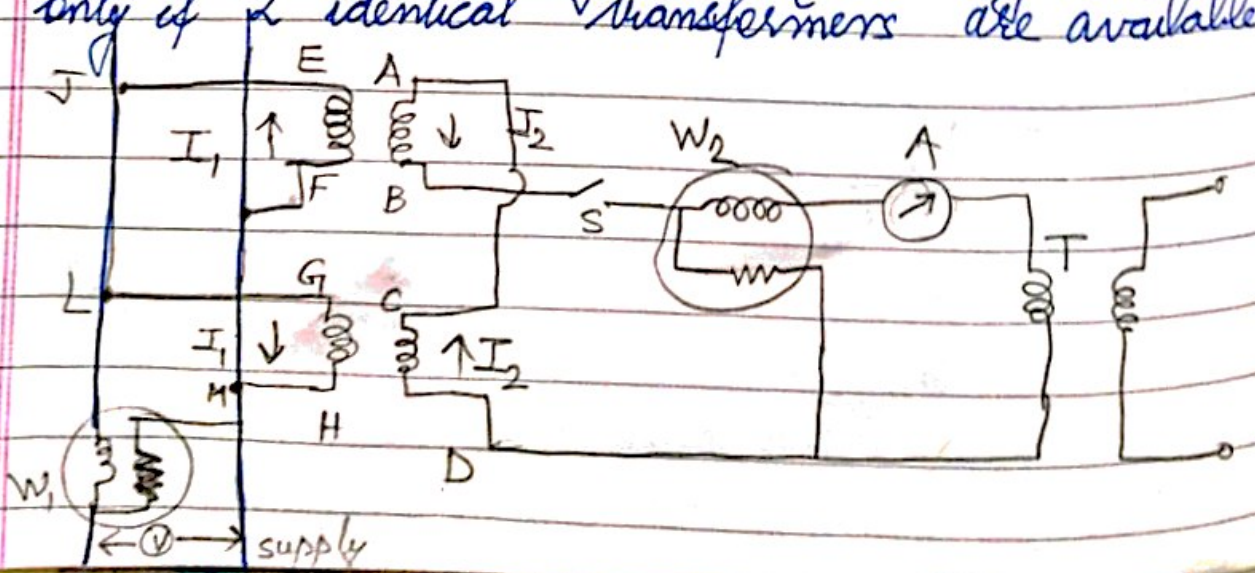 only if 2 identical transformers are available
J E A I2
I1 F B S W2 A
L G C T
I1 I2
M H D
W1
V supply